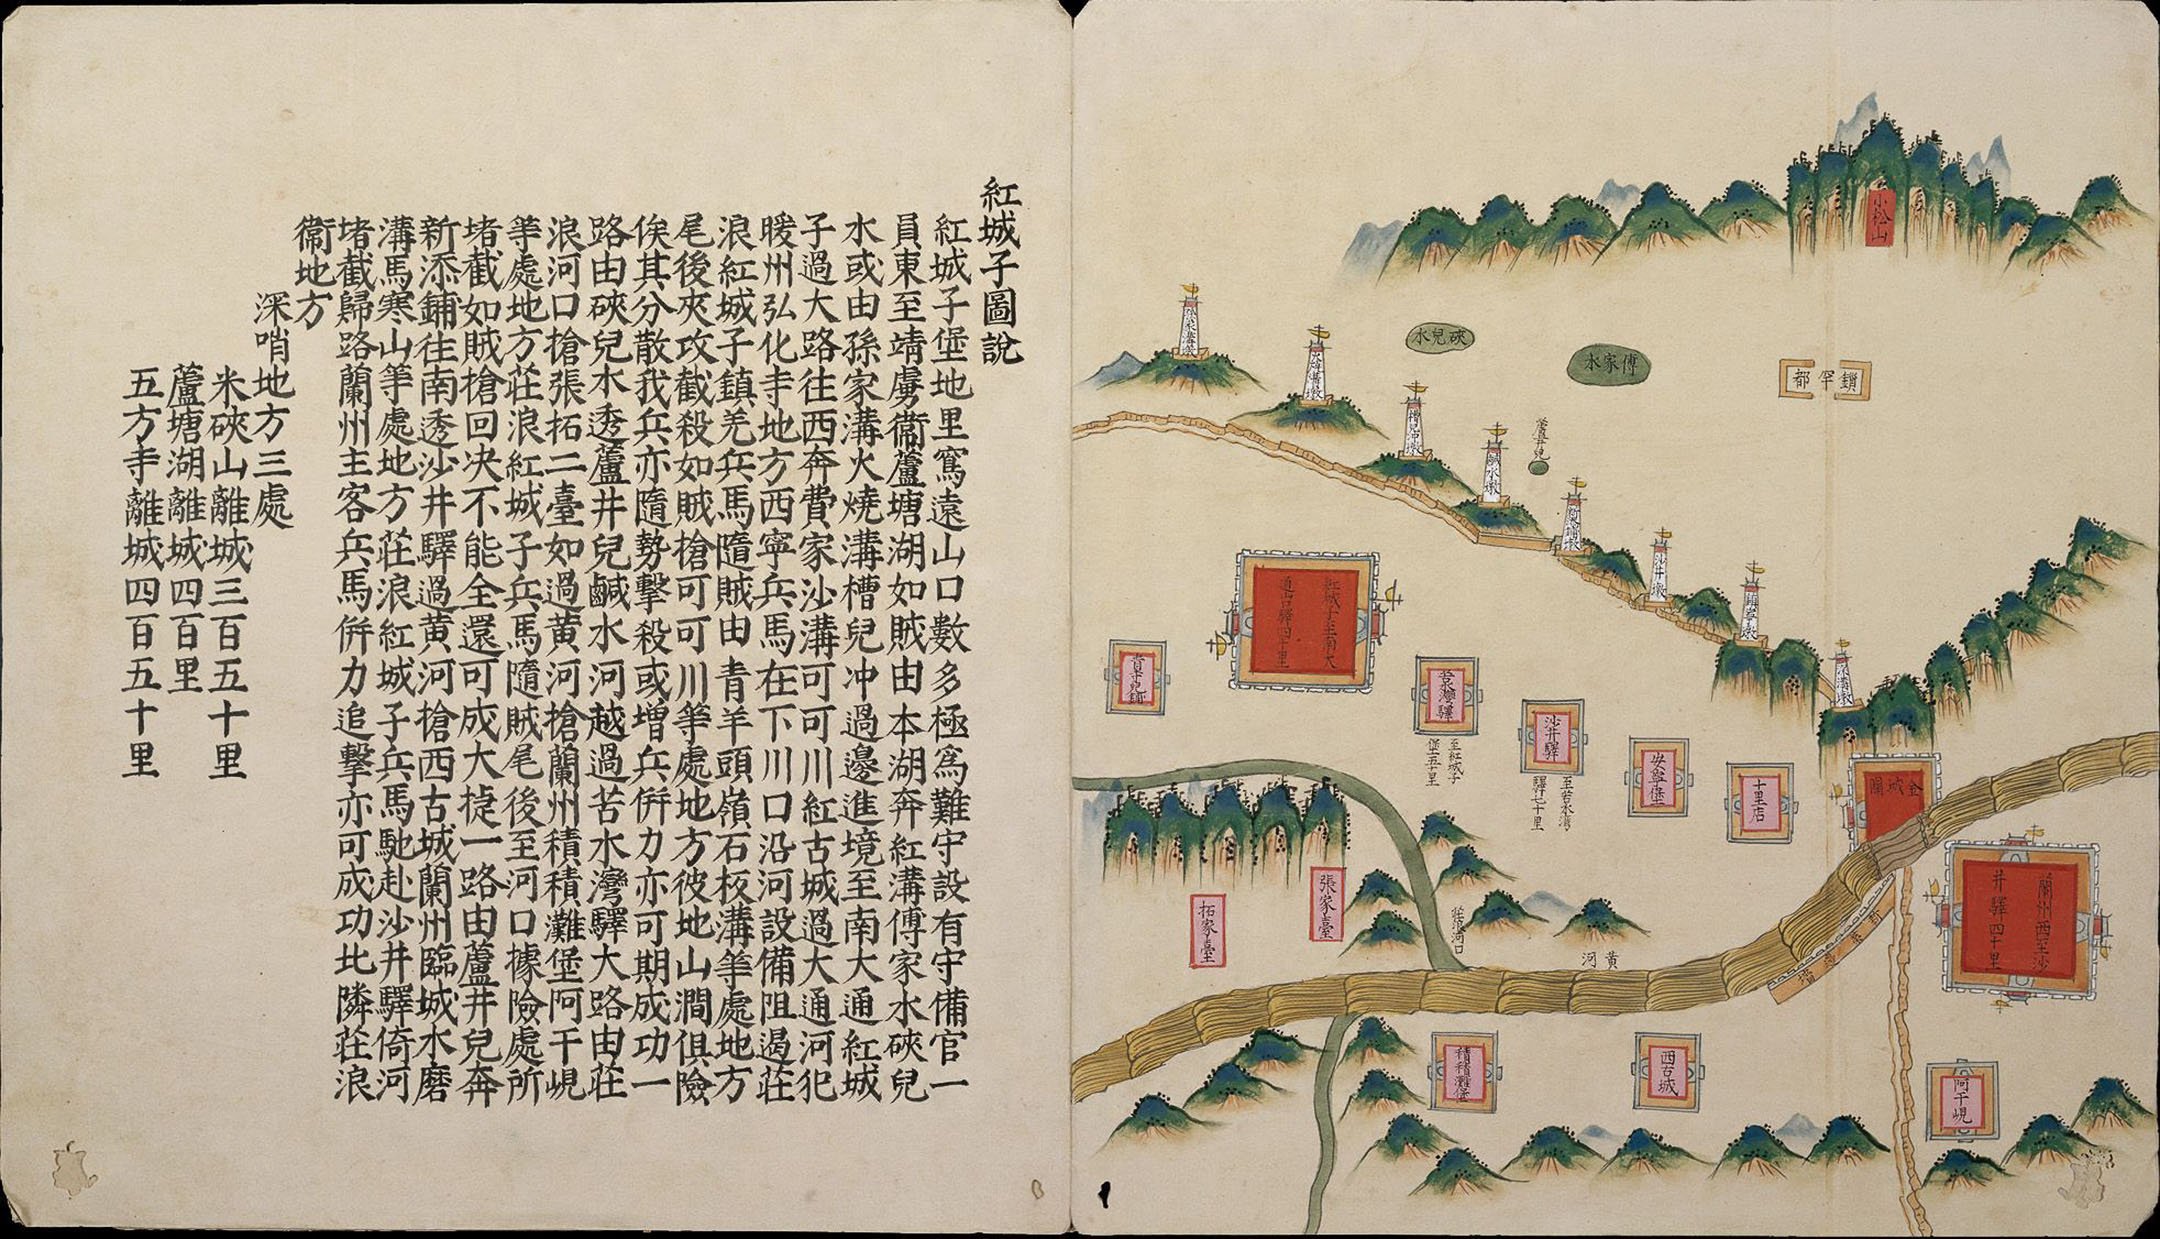 紅城子圖說
紅城子堡地里窵遠山口數多極爲難守設有守備官一
員東至靖虜衞蘆塘湖如賊由本湖奔紅溝傅家水硤兒
水或由孫家溝火燒溝槽兒冲過邊進境至南大通紅城
子過大路往西奔費家沙溝可可川紅古城過大通河犯
暖州弘化寺地方西寧兵馬在下川口沿河設備阻遏莊
浪紅城子鎮羌兵馬隨賊由青羊頭嶺石板溝等處地方
尾後夾攻截殺如賊搶可可川等處地方彼地山澗俱險
俟其分散我兵亦隨勢擊殺或增兵併力亦可期成功一
路由硤兒水透蘆井兒鹹水河越過苦水灣驛大路由莊
浪河口搶張拓二臺如過黃河搶蘭州積積灘堡阿干峴
等處地方莊浪紅城子兵馬隨賊尾後至河口據險處所
堵截如賊搶回决不能全還可成大㨗一路由蘆井兒奔
新添鋪往南透沙井驛過黃河搶西古城蘭州臨城水磨
溝馬寒山等處地方莊浪紅城子兵馬馳赴沙井驛倚河
堵截歸路蘭州主客兵馬併力追擊亦可成功比隣莊浪
衞地方
深哨地方三處
米硤山離城三百五十里
蘆塘湖離城四百里
五方寺離城四百五十里
小松山
硤兒水
傅家水
鎖罕都
蘆井兒
槽兒冲墩
鹹水墩
沙井墩
紅城子至南大
通山驛四十里
苦水灣驛
至紅城子
堡五十里
沙井驛
至苦水灣
驛七十里
安寧堡
十里店
金城關
蘭州西至沙
井驛四十里
張家臺
拓家臺
莊浪河口
黃河
積積灘堡
西古城
阿干峴